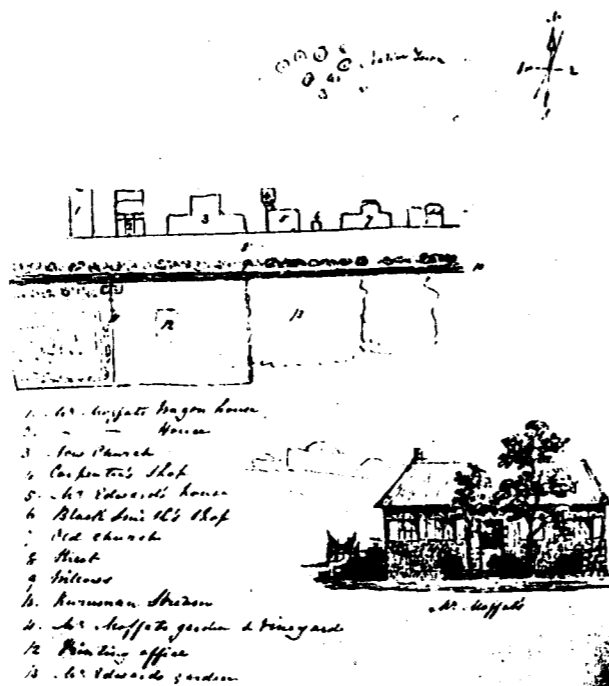 Native Town
1. Mr. Moffats Wagon house
2. - - House
3 New Church
4 Carpenter's Shop
5. Mr. Edward's house
6 Black Smith's Shop
7 Old Church
8 Street
9 Willows
10. Kuruman Stream
11. Mr. Moffats garden & Vineyard
12 Printing office
13 Mr. Edwards garden
Mr. Moffat's
3
6
7
10
12
13